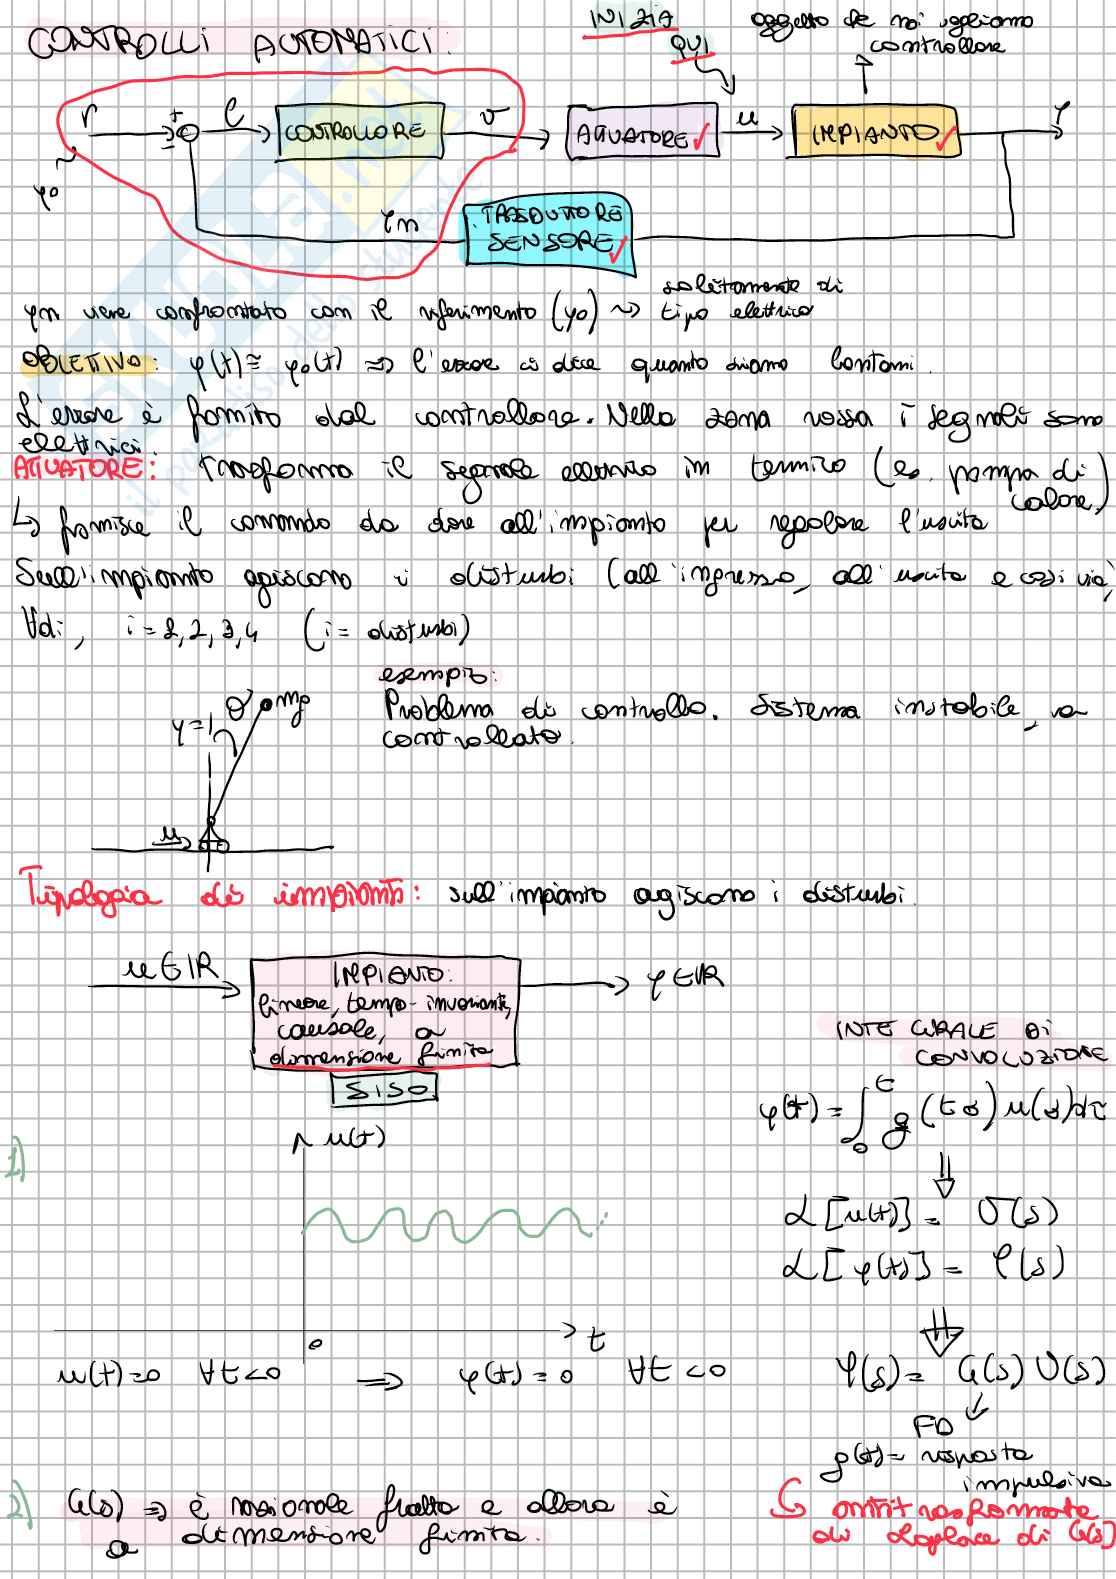 CONTROLLI AUTOMATICI:
INIZIA
QUI
oggetto che noi vogliamo
controllare
r
+
-
e
CONTROLLORE
v
ATTUATORE
u
IMPIANTO
y
y0
ym
TRASDUTTORE
SENSORE
ym viene confrontato con il riferimento (y0) ~> solitamente di
tipo elettrico
OBIETTIVO: y(t) ≅ y0(t) => l'errore ci dice quanto siamo lontani.
L'errore è fornito dal controllore. Nella zona rossa i segnali sono
elettrici.
ATTUATORE: trasforma il segnale elettrico in termico (es. pompa di
calore)
↳ fornisce il comando da dare all'impianto per regolare l'uscita
Sull'impianto agiscono i disturbi (all'ingresso, all'uscita e così via)
∀di, i = 1,2,3,4 (i = disturbi)
esempio:
Problema di controllo. Sistema instabile, va
controllato.
y=1
θ
mg
u
Tipologia di impianti: sull'impianto agiscono i disturbi.
u∈IR
IMPIANTO:
lineare, tempo-invariante,
causale, a
dimensione finita
SISO
y∈IR
INTEGRALE DI
CONVOLUZIONE
y(t) = ∫₀ᵗ g(t-σ) u(σ)dτ
ℒ[u(t)] = U(s)
ℒ[y(t)] = Y(s)
Y(s) = G(s) U(s)
FD
g(t) = risposta
impulsiva
↳ antitrasformata
di Laplace di G(s)
1)
u(t)
0
t
u(t)=0 ∀t<0 => y(t)=0 ∀t<0
2) G(s) => è razionale fratta e allora è
a dimensione finita.